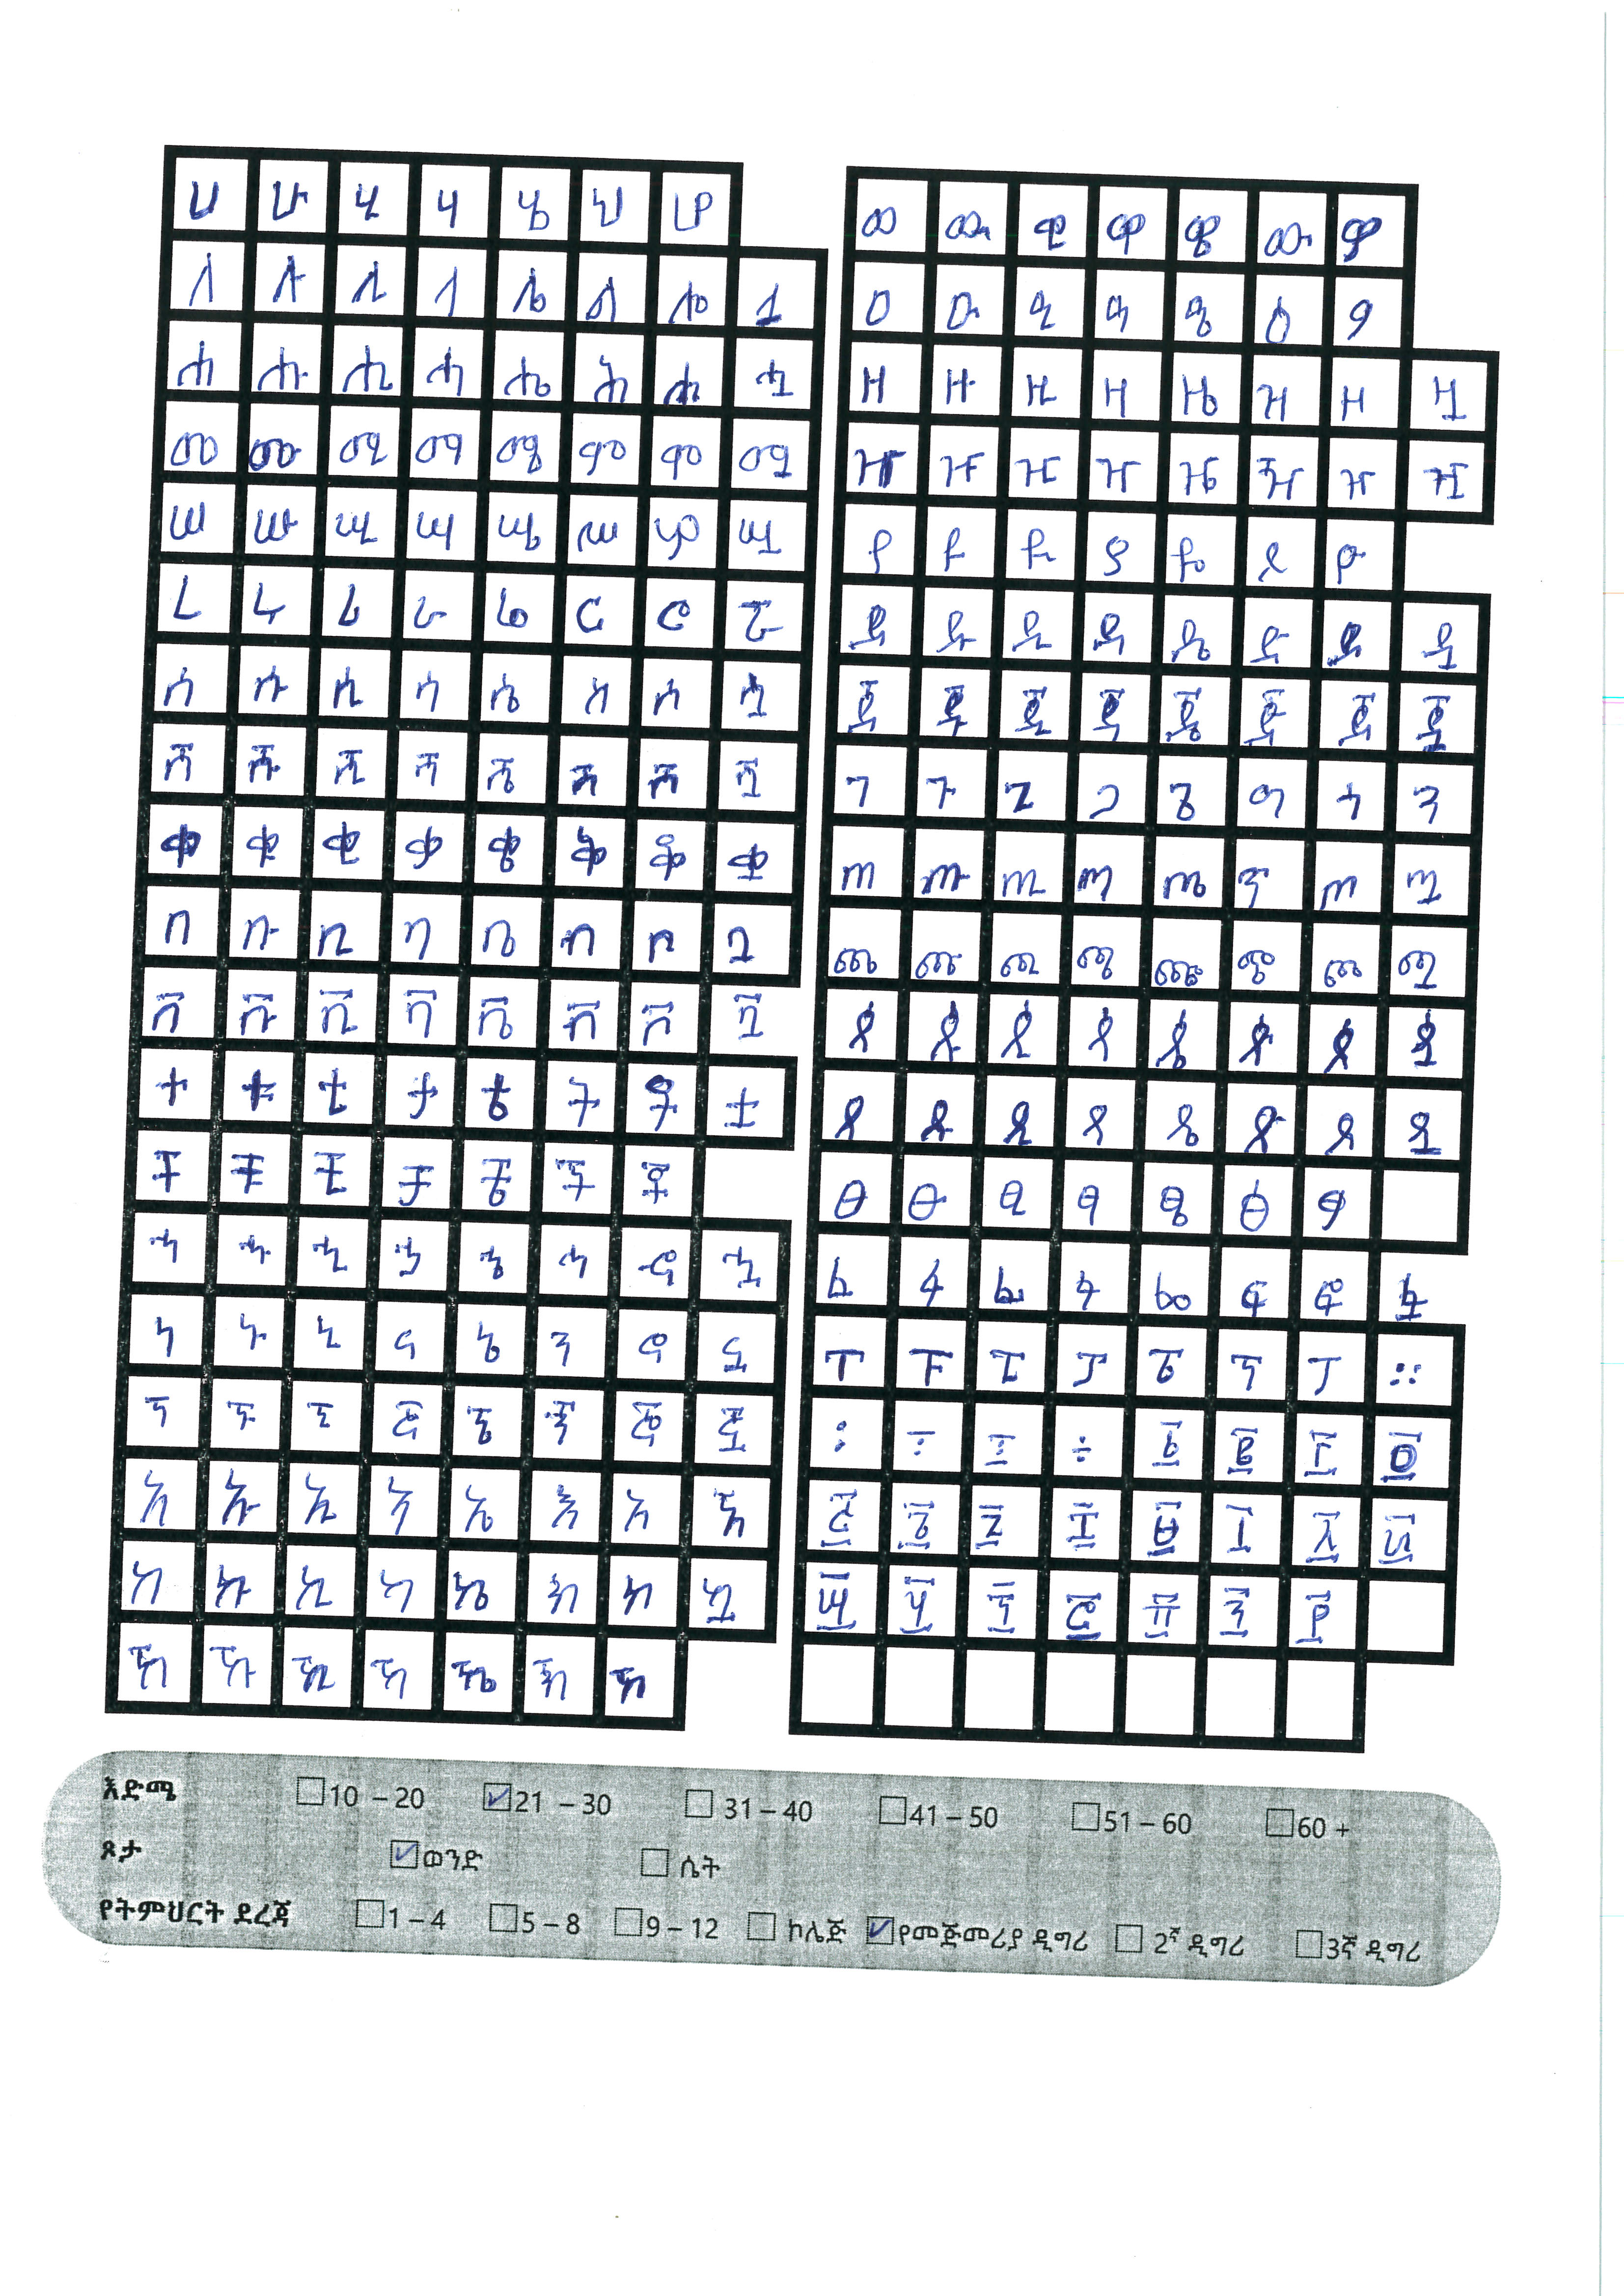 ሀ ሁ ሂ ሃ ሄ ህ ሆ
ለ ሉ ሊ ላ ሌ ል ሎ ሏ
ሐ ሑ ሒ ሓ ሔ ሕ ሖ ሗ
መ ሙ ሚ ማ ሜ ም ሞ ሟ
ሠ ሡ ሢ ሣ ሤ ሥ ሦ ሧ
ረ ሩ ሪ ራ ሬ ር ሮ ሯ
ሰ ሱ ሲ ሳ ሴ ስ ሶ ሷ
ሸ ሹ ሺ ሻ ሼ ሽ ሾ ሿ
ቀ ቁ ቂ ቃ ቄ ቅ ቆ ቋ
በ ቡ ቢ ባ ቤ ብ ቦ ቧ
ቨ ቩ ቪ ቫ ቬ ቭ ቮ ቯ
ተ ቱ ቲ ታ ቴ ት ቶ ቷ
ቸ ቹ ቺ ቻ ቼ ች ቾ
ኀ ኁ ኂ ኃ ኄ ኅ ኆ ኋ
ነ ኑ ኒ ና ኔ ን ኖ ኗ
ኘ ኙ ኚ ኛ ኜ ኝ ኞ ኟ
አ ኡ ኢ ኣ ኤ እ ኦ ኧ
ከ ኩ ኪ ካ ኬ ክ ኮ ኳ
ኸ ኹ ኺ ኻ ኼ ኽ ኾ
ወ ዉ ዊ ዋ ዌ ው ዎ
ዐ ዑ ዒ ዓ ዔ ዕ ዖ
ዘ ዙ ዚ ዛ ዜ ዝ ዞ ዟ
ዠ ዡ ዢ ዣ ዤ ዥ ዦ ዧ
የ ዩ ዪ ያ ዬ ይ ዮ
ደ ዱ ዲ ዳ ዴ ድ ዶ ዷ
ጀ ጁ ጂ ጃ ጄ ጅ ጆ ጇ
ገ ጉ ጊ ጋ ጌ ግ ጎ ጓ
ጠ ጡ ጢ ጣ ጤ ጥ ጦ ጧ
ጨ ጩ ጪ ጫ ጬ ጭ ጮ ጯ
ጰ ጱ ጲ ጳ ጴ ጵ ጶ ጷ
ጸ ጹ ጺ ጻ ጼ ጽ ጾ ጿ
ፀ ፁ ፂ ፃ ፄ ፅ ፆ
ፈ ፉ ፊ ፋ ፌ ፍ ፎ ፏ
ፐ ፑ ፒ ፓ ፔ ፕ ፖ ።
፡ ፣ ፤ ÷ ፩ ፪ ፫ ፬
፭ ፮ ፯ ፰ ፱ ፲ ፳ ፴
፵ ፶ ፷ ፸ ፹ ፺ ፻
እድሜ 10 – 20 21 – 30 31 – 40 41 – 50 51 – 60 60 +
ጾታ ወንድ ሴት
የትምህርት ደረጃ 1 – 4 5 – 8 9 – 12 ኮሌጅ የመጅመሪያ ዲግሪ 2ኛ ዲግሪ 3ኛ ዲግሪ